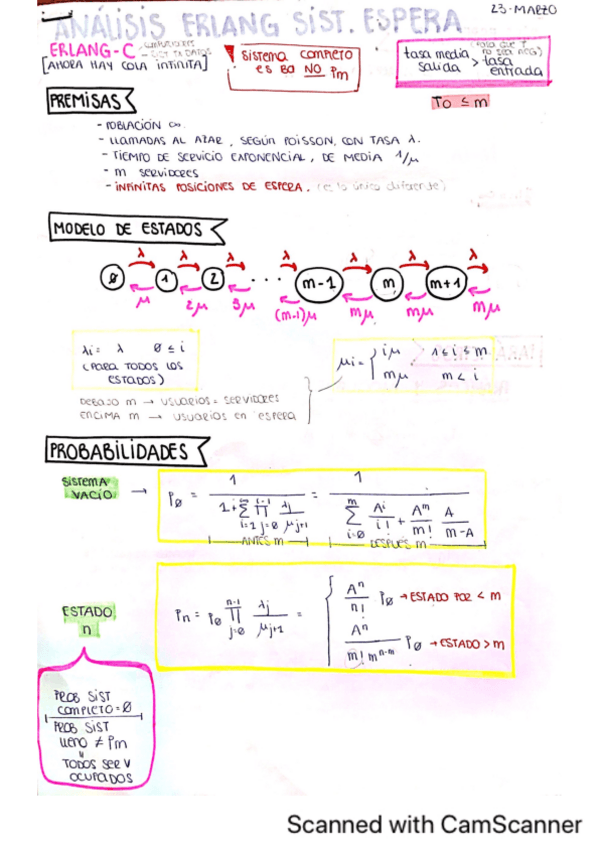 23·MARZO
ANÁLISIS ERLANG SIST. ESPERA
ERLANG-C
[AHORA HAY COLA INFINITA]
SISTEMA COMPLETO
ES BØ NO Pm
tasa media > tasa
salida entrada
TO ≤ m
PREMISAS
- POBLACIÓN ∞.
- LLAMADAS AL AZAR, SEGÚN POISSON, CON TASA λ.
- TIEMPO DE SERVICIO EXPONENCIAL, DE MEDIA 1/μ
- m SERVIDORES
- INFINITAS POSICIONES DE ESPERA. (es lo único diferente)
MODELO DE ESTADOS
λ λ λ λ λ λ λ
Ø 1 2 ... m-1 m m+1
μ 2μ 3μ (m-1)μ mμ mμ mμ
λi = λ Ø ≤ i
(PARA TODOS LOS
ESTADOS)
μi = { iμ 1 ≤ i ≤ m
mμ m < i
DEBAJO m → USUARIOS = SERVIDORES
ENCIMA m → USUARIOS EN ESPERA
PROBABILIDADES
SISTEMA
VACÍO →
PØ = 1 / (1 + ∞Σi=1 i-1Πj=Ø λj / μj+1) = 1 / (mΣi=Ø A^i / i! + A^m / m! A / m-A)
ANTES m DESPUÉS m
ESTADO
n
Pn = PØ n-1Πj=Ø λj / μj+1 =
A^n / n! PØ → ESTADO POR < m
A^n / m! m^n-m PØ → ESTADO > m
PROB SIST
COMPLETO = Ø
PROB SIST
LLENO ≠ Pm
TODOS SERV
OCUPADOS
Scanned with CamScanner